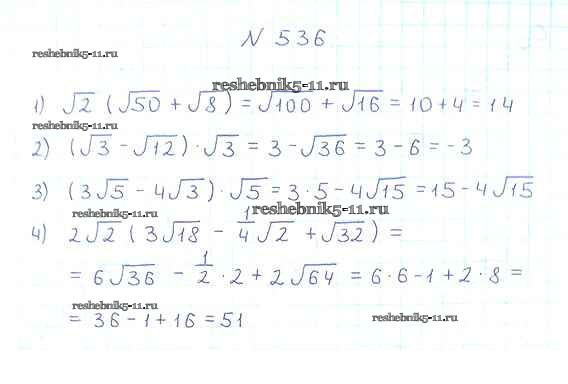 N 536
reshebnik5-11.ru
reshebnik5-11.ru
1) √2 (√50 + √8) = √100 + √16 = 10 + 4 = 14
reshebnik5-11.ru
2) (√3 - √12) · √3 = 3 - √36 = 3 - 6 = -3
3) (3√5 - 4√3) · √5 = 3 · 5 - 4√15 = 15 - 4√15
reshebnik5-11.ru
reshebnik5-11.ru
4) 2√2 (3√18 - 1/4 √2 + √32) =
= 6√36 - 1/2 · 2 + 2√64 = 6 · 6 - 1 + 2 · 8 =
reshebnik5-11.ru
= 36 - 1 + 16 = 51
reshebnik5-11.ru